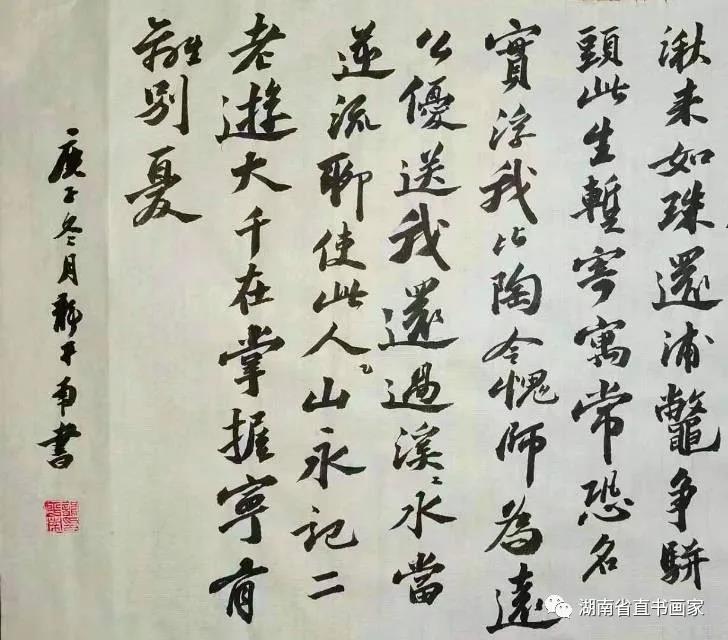 湫来如珠還浦鼈争駢
頭此生暫寄寓常恐名
實浮我比陶令愧師為遠
公優送我還過溪〻水當
逆流聊使此人山永記二
老遊大千在掌握寧有
離別憂
庚子冬月 書
湖南省直书画家